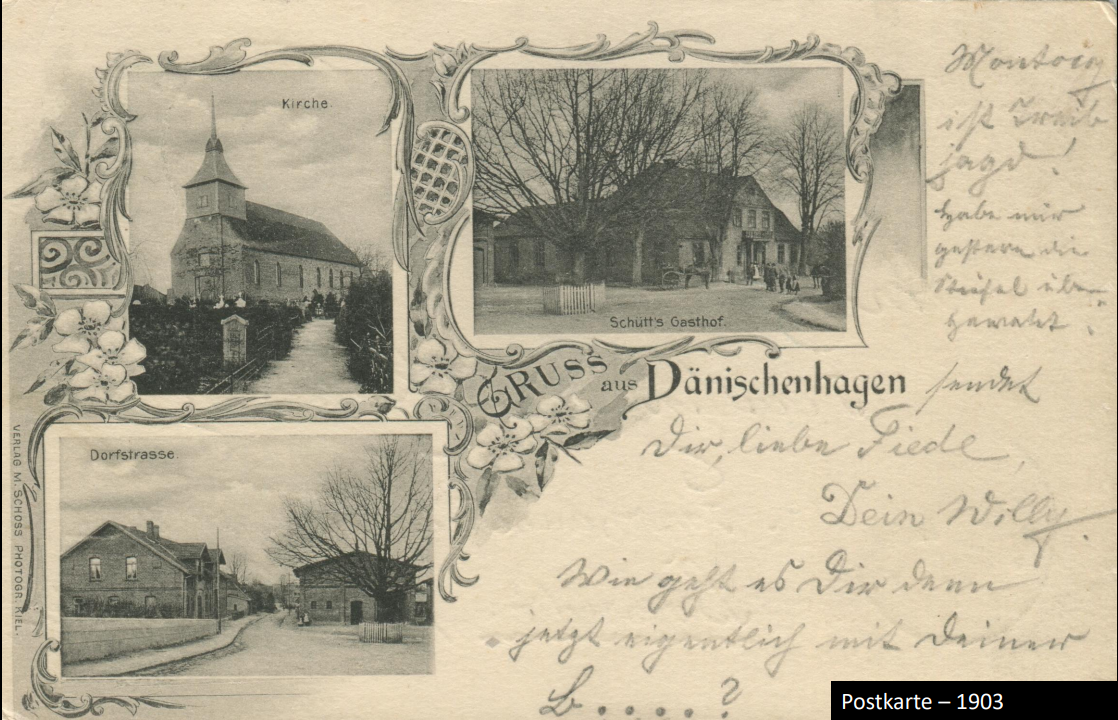 Kirche.
Schütt's Gasthof.
GRUSS aus Dänischenhagen
Dorfstrasse.
VERLAG M. SCHOSS PHOTOGR. KIEL.
Montag
ist Treib
jagd!
Habe mir
gestern die
Stiefel über
sendet
Dir, liebe Fiede,
Dein Willy.
Wie geht es Dir denn
jetzt eigentlich mit Deiner
B.....?
Postkarte – 1903